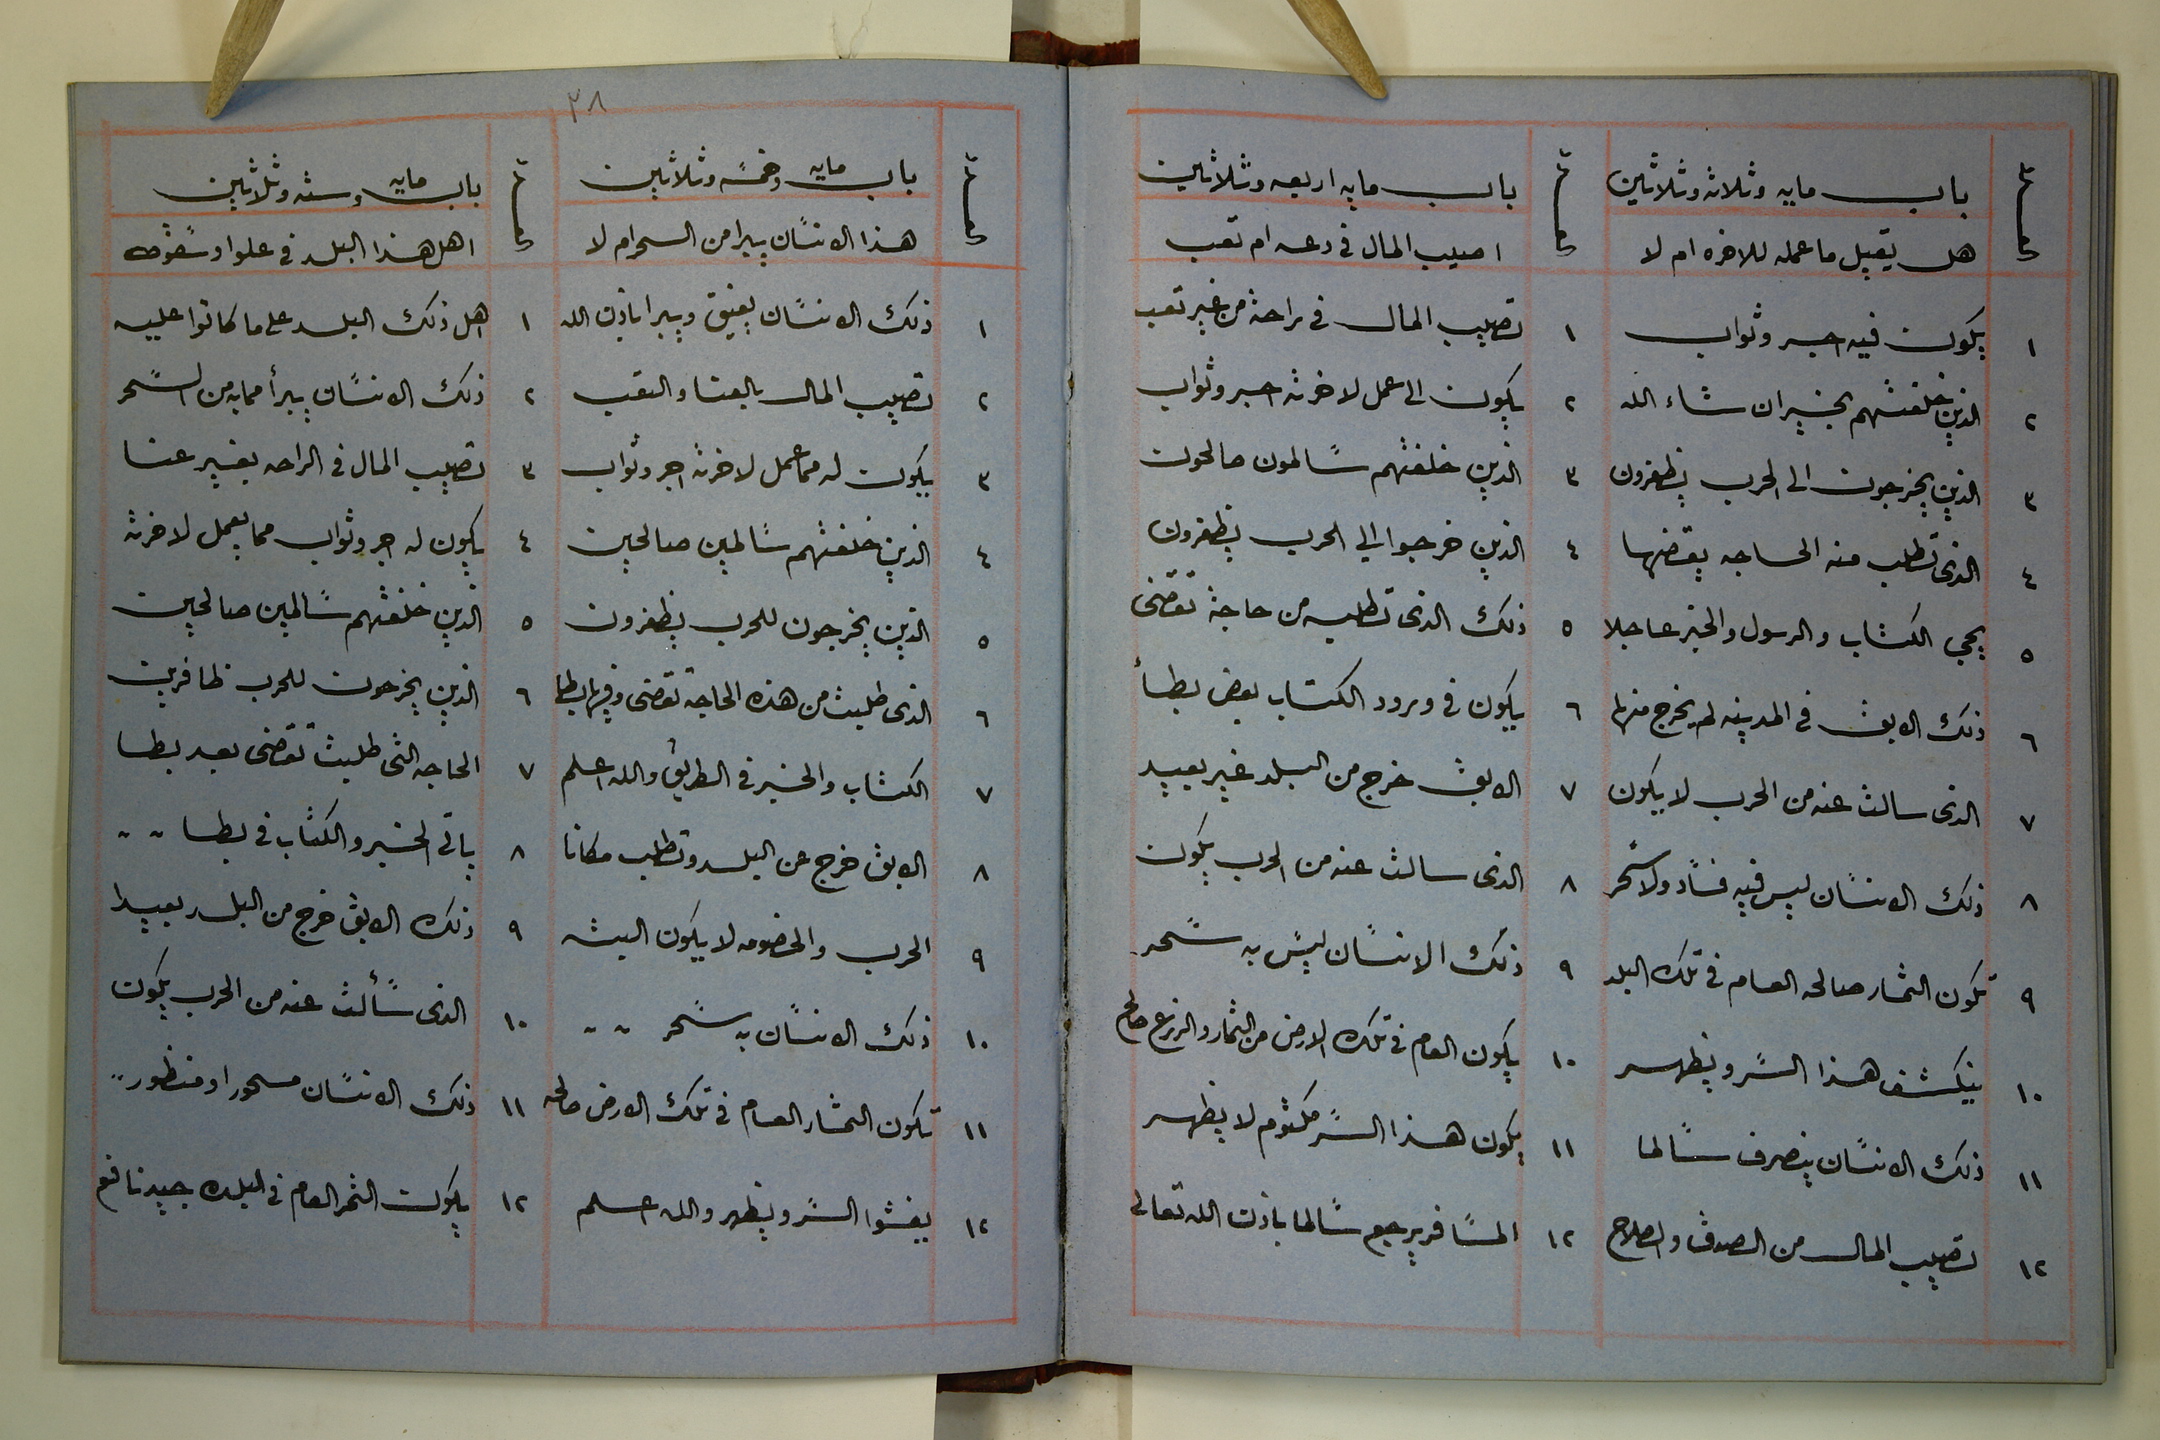 باب مايه وثلاثه وثلاثين
هل يقبل ما عمله للاخره ام لا
١ يكون فيه اجر وثواب
٢ الذين خلفتهم بخير ان شاء الله
٣ الذين يخرجون الى الحرب يظفرون
٤ الذى تطلب منه الحاجه يقضيها
٥ يجي الكتاب والرسول والخبر عاجلا
٦ ذلك الابق في المدينه لم يخرج منها
٧ الذى سالت عنه من الحرب لا يكون
٨ ذلك الانسان ليس فيه فساد ولا سحر
٩ تكون الثمار صالحه العام في تلك البلد
١٠ ينكشف هذا السر ويظهر
١١ ذلك الانسان ينصرف سالما
١٢ تصيب المال من الصدق والصلاح
باب مايه اربعه وثلاثين
اصيب المال في دعه ام تعب
١ تصيب المال في راحة من غير تعب
٢ يكون الى عمل لاخرته اجر وثواب
٣ الذين خلفتهم سالمون صالحون
٤ الذين خرجوا الى الحرب يظفرون
٥ ذلك الذى تطلبه من حاجة تقضى
٦ يكون في ورود الكتاب بعض بطأ
٧ الابق خرج من البلد غير بعيد
٨ الذى سالت عنه من الحرب يكون
٩ ذلك الانسان ليس به سحر
١٠ يكون العام في تلك الارض من الثمار والزرع صالح
١١ يكون هذا السر مكتوم لا يظهر
١٢ المسافر يرجع سالما باذن الله تعالى
٢٨
باب مايه وخمسه وثلاثين
هذا الانسان يبرا من السحر ام لا
١ ذلك الانسان يفيق ويبرا باذن الله
٢ تصيب المال بالعنا والتعب
٣ يكون له مما عمل لاخرته اجر وثواب
٤ الذين خلفتهم سالمين صالحين
٥ الذين يخرجون للحرب يظفرون
٦ الذى طلبت من هذه الحاجه تقضى وفيها بطا
٧ الكتاب والخبر في الطريق والله اعلم
٨ الابق خرج عن البلد وتطلب مكانا
٩ الحرب والخصومه لا يكون البته
١٠ ذلك الانسان به سحر
١١ تكون الثمار العام في تلك الارض صالحه
١٢ يفشوا السر ويظهر والله اعلم
باب مايه وسته وثلاثين
اهل هذا البلد في علو او سقوط
١ اهل ذلك البلد على ما كانوا عليه
٢ ذلك الانسان يبرأ مما به من السحر
٣ تصيب المال في الراحه بغير عنا
٤ يكون له اجر وثواب مما يعمل لاخرته
٥ الذين خلفتهم سالمين صالحين
٦ الذين يخرجون للحرب ظافرين
٧ الحاجه التى طلبت تقضى بعد بطا
٨ ياتى الخبر والكتاب في بطا
٩ ذلك الابق خرج من البلد بعيدا
١٠ الذى سألت عنه من الحرب يكون
١١ ذلك الانسان مسحورا او منظور
١٢ يكون الثمر العام في البلده جيد نافع